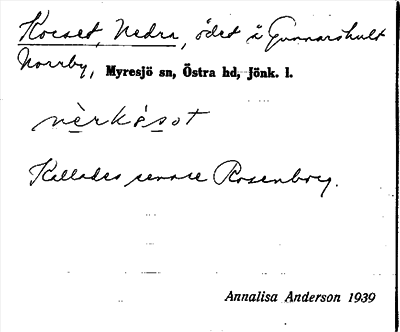 Kosset, Nedra, ödet i Gunnarshult
Norrby, Myresjö sn, Östra hd, Jönk. l.
nèrkósot
Kallades senare Rosenborg.
Annalisa Anderson 1939